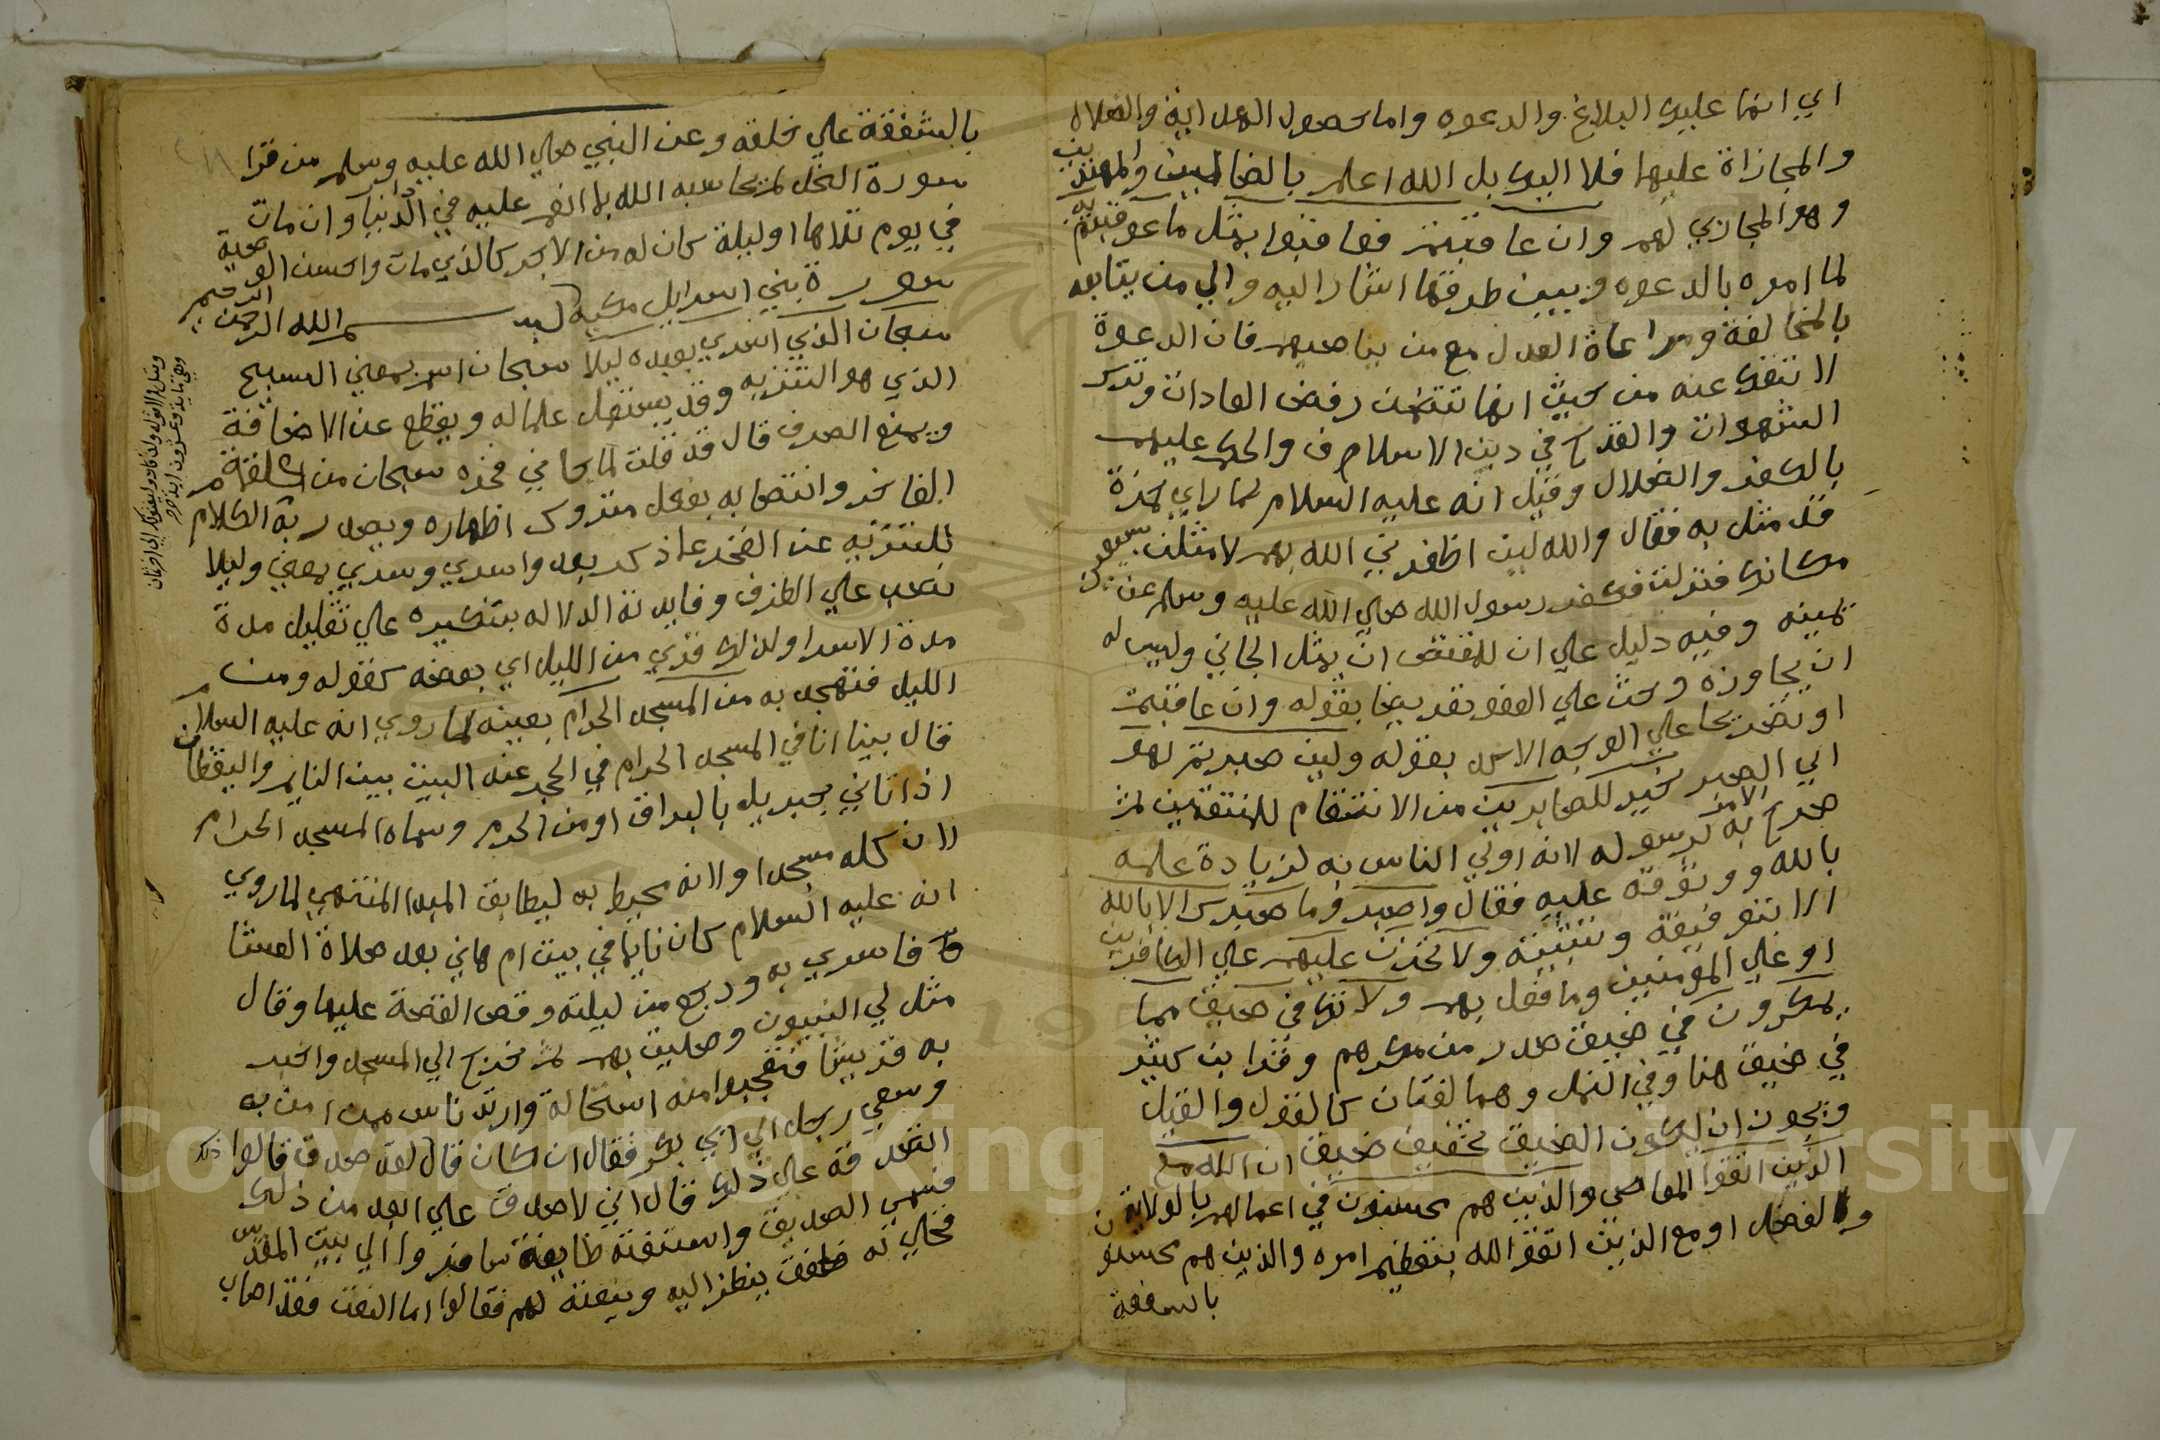 اي انما عليك البلاغ والدعوه واما حصول الهداية والضلال
والمجازاة عليهما فلا اليك بل الله اعلم بالضالين والمهتدين
وهو المجازي لهم وان عاقبتم فعاقبوا بمثل ما عوقبتم به
لما امره بالدعوه وبين طرقها اشار اليه والي من يتابعه
بالمخالفة ومراعاة العدل مع من يناصبهم فان الدعوة
لا تنفك عنه من حيث انها تتضمن رفض العادات وترك
الشهوات والقدح في دين الاسلاف والحكم عليهم
بالكفر والضلال وقيل انه عليه السلام لما راي حمزة
قد مثل به فقال والله لين اظفرني الله بهم لامثلن بسبعين
مكانك فنزلت فكفر رسول الله صلي الله عليه وسلم عن
يمينه وفيه دليل علي ان للمقتص ان يمثل الجاني وليس له
ان يجاوزه وحث علي العفو تعريضا بقوله وان عاقبتم
او تصريحا علي الوجه الاكد بقوله ولين صبرتم لهو
اي الصبر خير للصابرين من الانتقام للمنتقمين ثم
صرح الامر به لرسوله لانه اولي الناس به لزيادة علمه
بالله ووثوقه عليه فقال واصبر وما صبرك الا بالله
الا بتوفيقه وتثبيته ولا تحزن عليهم علي الكافرين
او علي المؤمنين وما فعل بهم ولا تك في ضيق مما
يمكرون في ضيق صدر من مكرهم وقرا بن كثير
في ضيق هنا وفي النمل وهما لغتان كالقول والقيل
ويجوز ان يكون الضيق تخفيف ضيق ان الله مع
الذين اتقوا المعاصي والذين هم محسنون في اعمالهم بالولاية
والفضل او مع الذين اتقوا الله بتعظيم امره والذين هم محسنون
بالشفقة
بالشفقة علي خلقه وعن النبي صلي الله عليه وسلم من قرا
سورة النحل لم يحاسبه الله بما انعم عليه في الدنيا وان مات
في يوم تلاها او ليلة كان له من الاجر كالذي مات واحسن الوصية
سورة بني اسرايل مكية بسم الله الرحمن الرحيم
سبحان الذي اسري بعبده ليلا سبحان اسم بمعني التسبيح
الذي هو التنزيه وقد يستعمل علما له ويقطع عن الاضافة
ويمنع الصرف قال قد قلت لما جاني فخره سبحان من علقمة
الفاخر وانتصابه بفعل متروك اظهاره وتصدير به الكلام
للتنزيه عن الفخر عما ذكر بعد واسري وسري بمعني وليلا
نصب علي الظرف وفايدته الدلاله بتنكيره علي تقليل مدة
مدة الاسرا ولذلك قري من الليل اي بعضه كقوله ومن
الليل فتهجد به من المسجد الحرام بعينه لما روي انه عليه السلام
قال بينا انا في المسجد الحرام في الحجر عند البيت بين النايم واليقظان
اذ اتاني جبريل بالبراق او من الحرم وسماه المسجد الحرام
لان كله مسجد او لانه محيط به ليطابق المبدا المنتهي لما روي
انه عليه السلام كان نايما في بيت ام هاني بعد صلاة العشا
فاسري به ورجع من ليلته وقص القصة عليها وقال
مثل لي النبيون وصليت بهم ثم خرج الي المسجد واخبر
به قريشا فتعجبوا منه استحالة وارتد ناس ممن امن به
وسعي رجل الي ابي بكر فقال ان كان قال لقد صدق قالوا
اتصدقه علي ذلك قال اني لاصدق علي ابعد من ذلك
فسمي الصديق واستنعته طايفة سافروا الي بيت المقدس
فجلي له فطفق ينظر اليه وينعته لهم فقالوا اما النعت فقد اصاب
وقيل الا قوله وان كادوا ليفتنونك الي اخر ثمان